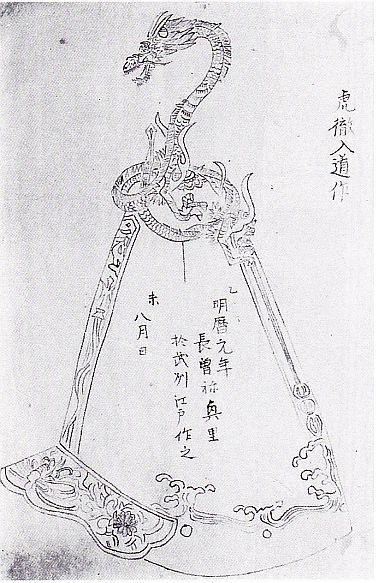 虎徹入道作
乙
明暦元年
長曽祢奥里
於武州江戸作之
未
八月日